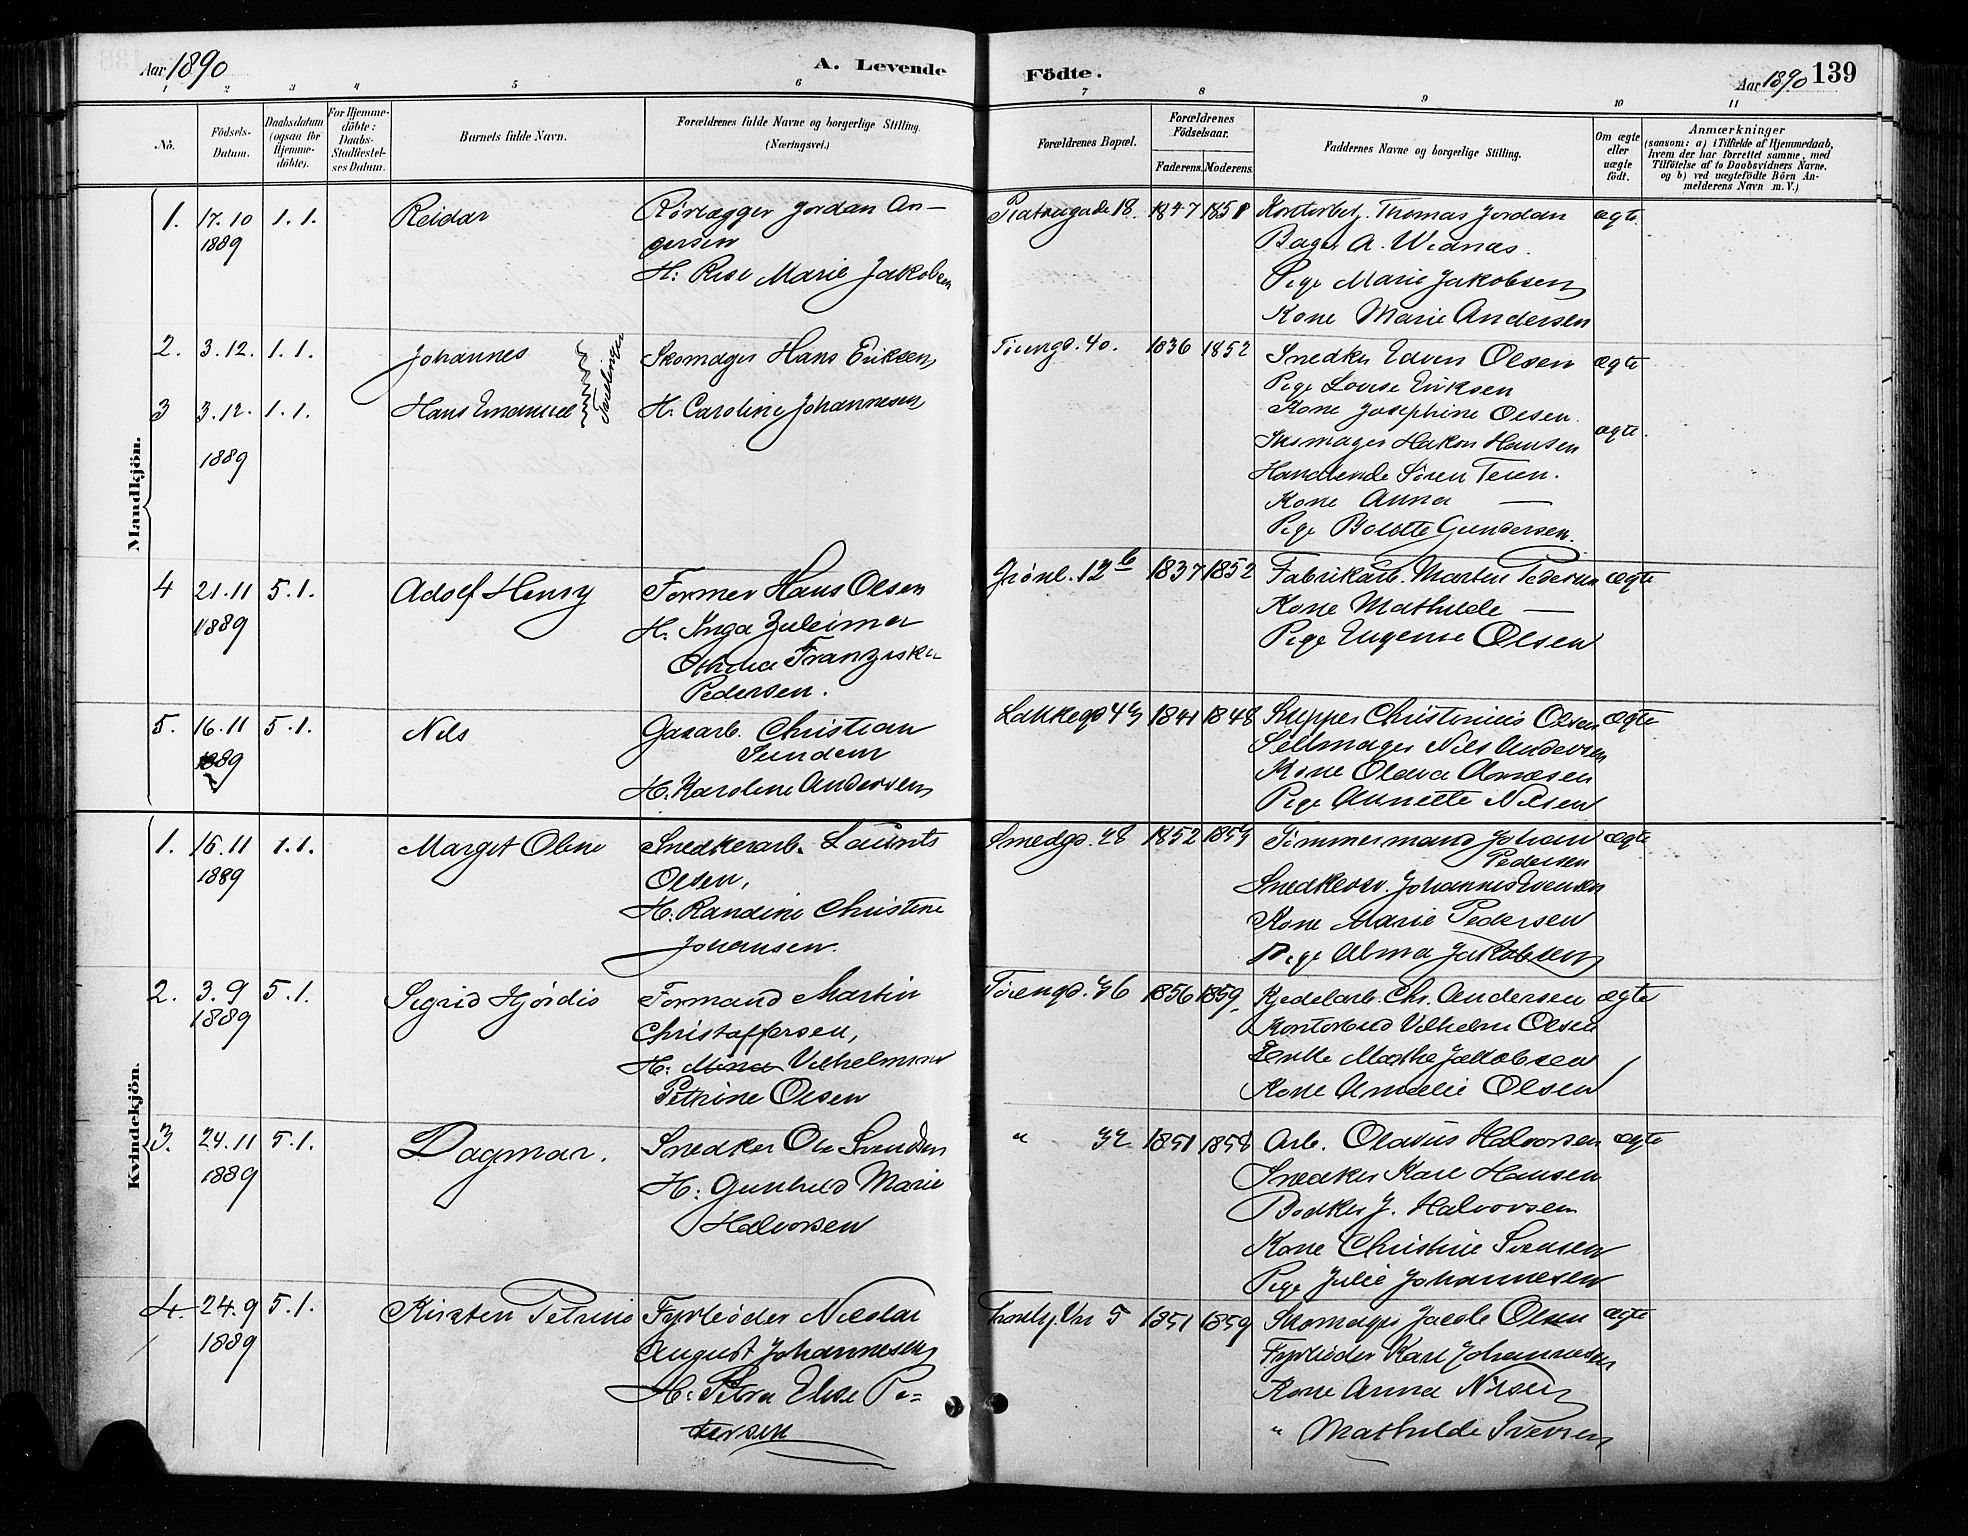 Aar 1890
A. Levende
Födte.
Aar 1890 139
1 2 3 4 5 6 7 8 9 10 11
No.
Födsels-Datum.
Daabsdatum (ogsaa for Hjemme-döbte).
For Hjemme-döbte: Daabs-Stadfæstel-ses Datum.
Barnets fulde Navn.
Forældrenes fulde Navne og borgerlige Stilling.
(Næringsvei.)
Forældrenes Bopæl.
Forældrenes Födselsaar.
Faderens. Moderens.
Faddernes Navne og borgerlige Stilling.
Om ægte eller uægte födt.
Anmærkninger
(saasom: a) i Tilfælde af Hjemmedaab,
hvem der har forrettet samme, med
Tilföielse af to Daabsvidners Navne,
og b) ved uægtefödte Börn An-
melderens Navn m. V.)
Mandkjön.
1. 17.10 1.1. Reidar Rørlægger Jordan An-
1889 gersen
H: Rise Marie Jakobsen
Platougade 18. 1847 1851 Kontorbetj. Thomas Jordan ægte
Bager A. Widnæs.
Pige Marie Jakobsen
Kone Marie Andersen
2. 3.12. 1.1. Johannes Skomager Hans Eriksen
Tvillinger
3 3.12. 1.1. Hans Emanuel H. Caroline Johannesen
1889
Tøiengd. 40. 1836 1852 Snedker Edvin Olsen ægte
Pige Louise Eriksen
Kone Josephine Olsen.
Skomager Hakon Hansen ægte.
Handlende Søren Teien.
Kone Anna —
Pige Bolette Gundersen.
4 21.11 5.1. Adolf Henry Former Hans Olsen
1889 H. Inga Zuleima
Othilia Franziska
Pedersen.
Grønl. 12 b 1837 1852 Fabrikarb. Martin Pedersen ægte
Kone Mathilde —
Pige Eugenie Olsen
5. 16.11 5.1. Nils Gasarb. Christian
1889 Sundem
H. Karoline Andersen
Lakkegd 43 1841 1848 Christinius Olsen ægte
Seilmager Nils Andersen
Kone Olava Arnesen
Pige Annette Nilsen
Kvindekjön.
1. 16.11 1.1. Margit Oline Snedkerarb. Laurits
1889 Olsen,
H. Randine Christine
Johansen.
Smedgd. 28 1852 1859 Tømmermand Johan ægte
Pedersen
Snedkersv. Johannes Evensen
Kone Marie Pedersen
Pige Alma Jakobsen
2. 3.9 5.1. Sigrid Hjørdis Formand Martin
1889 Christoffersen,
H: Mina Vilhelmine
Petrine Olsen
Tøiengd. 36 1856 1859. Kjedelarb. Chr. Andersen ægte
Kontorbud Vilhelm Olsen
Enke Mathe Jakobsen
Kone Amalie Olsen
3. 24.11 5.1. Dagmar. Snedker Ole Svendsen
1889 H: Gunhild Marie
Halvorsen
" 32 1851 1858 Arb. Olavus Halvorsen ægte
Snedker Karl Hansen
Bødker J. Halvorsen
Kone Christine Svensen
Pige Julie Johannesen
4. 24.9 5.1. Kirsten Petrine Fyrbøder Nicolai
1889 August Johannesen
H: Petra Elise Pe-
tersen
5 1851 1859 Skomager Jacob Olsen ægte
Fyrbøder Karl Johannesen
Kone Anna Nilsen
" Mathilde Iversen